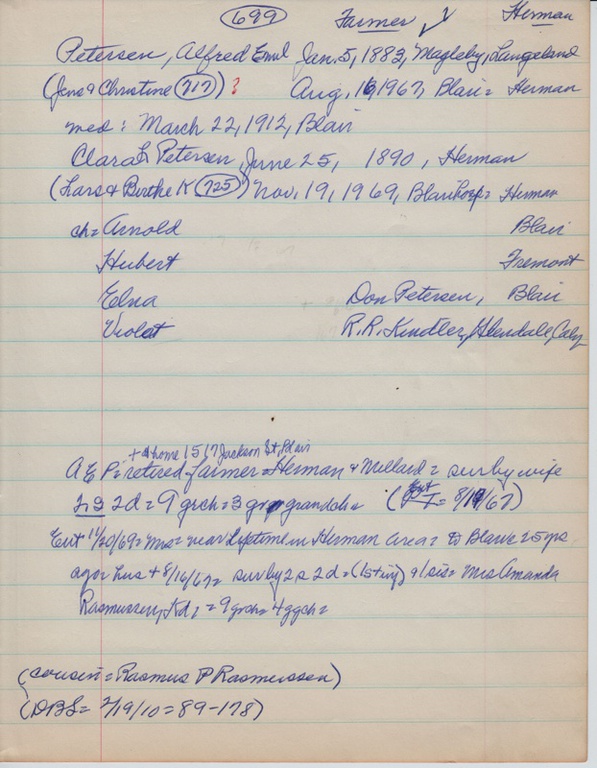 699 Farmer ✓ Herman
Petersen, Alfred Emil Jan. 5, 1883, Magleby, Langeland
(Jens & Christine 717) ? Aug. 16, 1967, Blair = Herman
med: March 22, 1912, Blair
Clara L Petersen, June 25, 1890, Herman
(Lars & Birthe K 725) Nov. 19, 1969, Blair hosp = Herman
ch = Arnold Blair
Hubert Fremont
Elna Don Petersen, Blair
Violet R.R. Kindler, Glendale, Calif
+ at home 1517 Jackson St, Blair
A E P = retired farmer = Herman & Millard = sur by wife
2s 2d = 9 grch = 3 gr grandch = (Ent = 8/17/67)
Ent 11/20/69 = Mrs = near lifetime in Herman area = to Blair 25 yrs
ago = hus + 8/16/67 = sur by 2s 2d = ( ) + 1 sis = Mrs Amanda
Rasmussen, Kd, = 9 grch = 4 ggch =
(cousin = Rasmus P Rasmussen)
(DBS = 2/19/10 = 89-178)